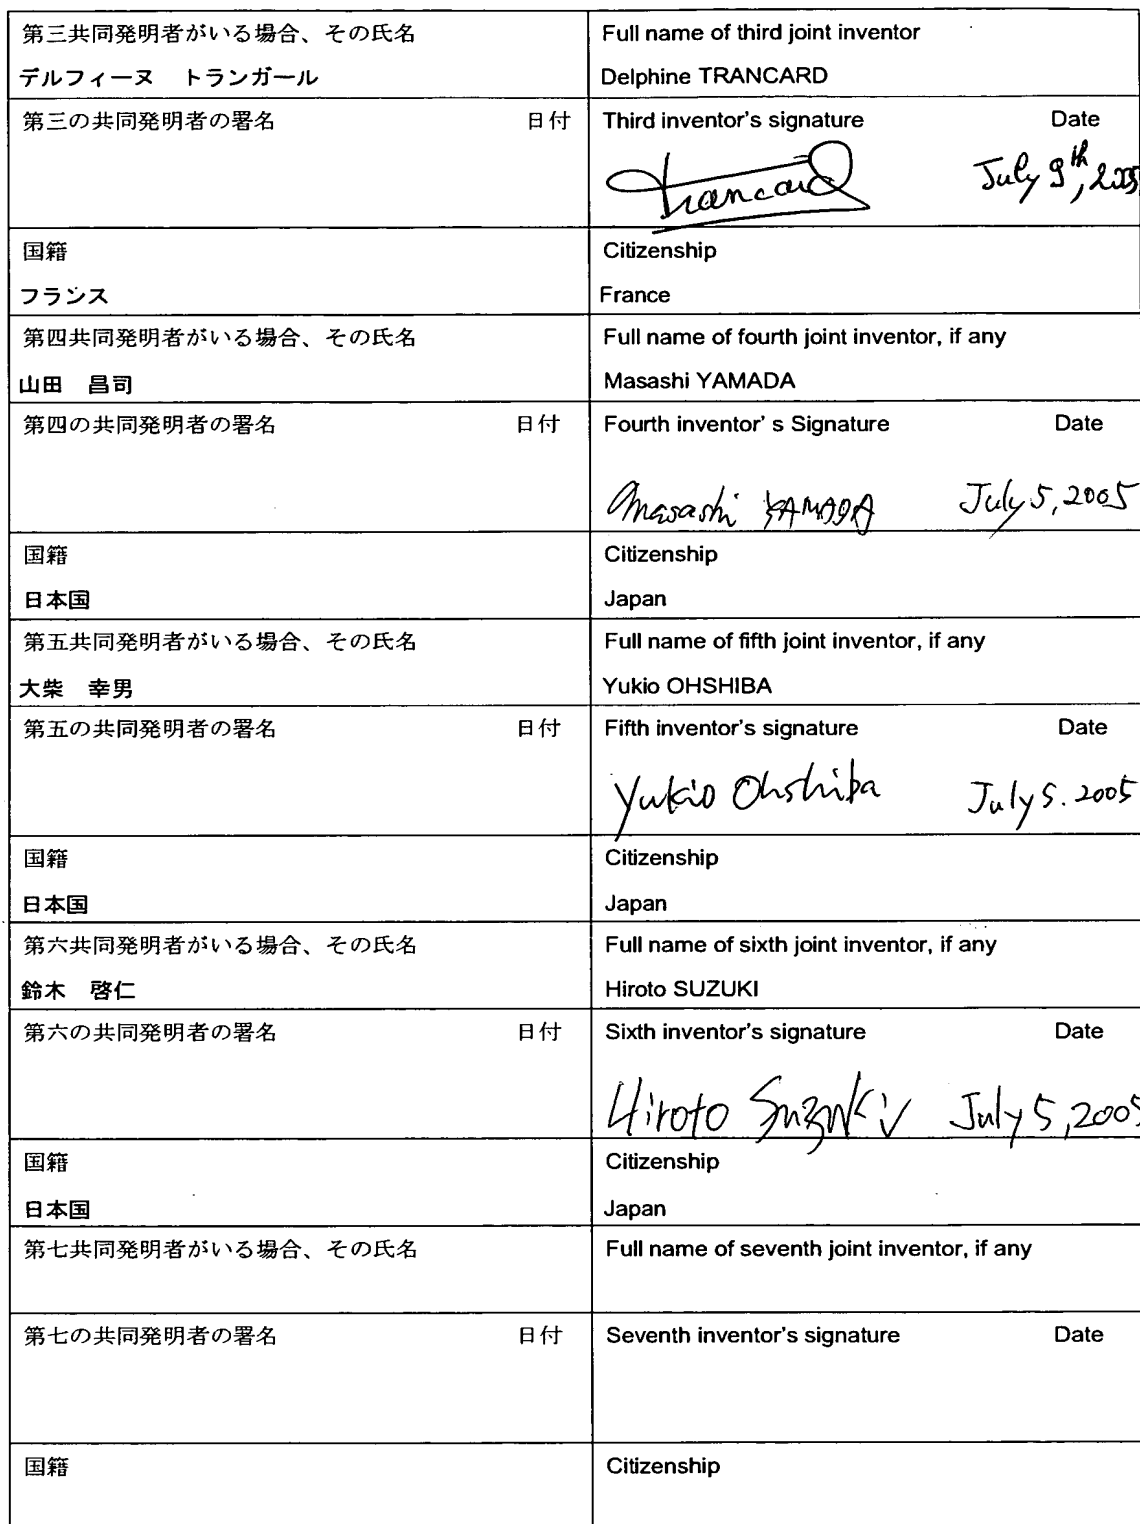 第三共同発明者がいる場合、その氏名
デルフィーヌ トランガール
Full name of third joint inventor
Delphine TRANCARD
第三の共同発明者の署名 日付
Third inventor's signature Date
Trancard July 9th, 2005
国籍
フランス
Citizenship
France
第四共同発明者がいる場合、その氏名
山田 昌司
Full name of fourth joint inventor, if any
Masashi YAMADA
第四の共同発明者の署名 日付
Fourth inventor's Signature Date
Masashi YAMADA July 5, 2005
国籍
日本国
Citizenship
Japan
第五共同発明者がいる場合、その氏名
大柴 幸男
Full name of fifth joint inventor, if any
Yukio OHSHIBA
第五の共同発明者の署名 日付
Fifth inventor's signature Date
Yukio Ohshiba July 5. 2005
国籍
日本国
Citizenship
Japan
第六共同発明者がいる場合、その氏名
鈴木 啓仁
Full name of sixth joint inventor, if any
Hiroto SUZUKI
第六の共同発明者の署名 日付
Sixth inventor's signature Date
Hiroto Suzuki July 5, 2005
国籍
日本国
Citizenship
Japan
第七共同発明者がいる場合、その氏名
Full name of seventh joint inventor, if any
第七の共同発明者の署名 日付
Seventh inventor's signature Date
国籍
Citizenship